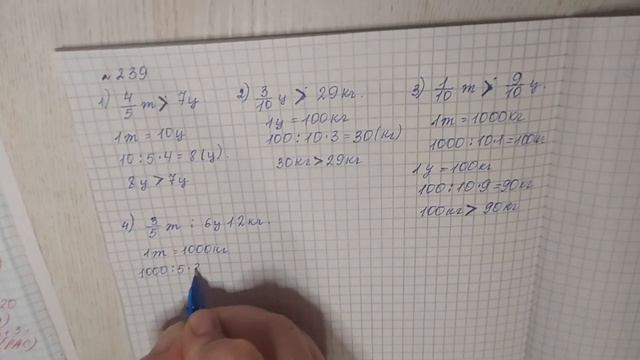 № 239
1) 4/5 т > 7ц
1т = 10ц
10:5·4=8(ц).
8ц > 7ц
2) 3/10 ц > 29кг.
1ц = 100кг
100:10·3=30(кг)
30кг > 29кг
3) 1/10 т > 9/10 ц.
1т = 1000кг
1000:10·1=100кг
1ц = 100кг
100:10·9=90кг
100кг > 90кг
4) 3/5 т : 6ц 12кг.
1т = 1000кг
1000:5·3
20
(РАС)